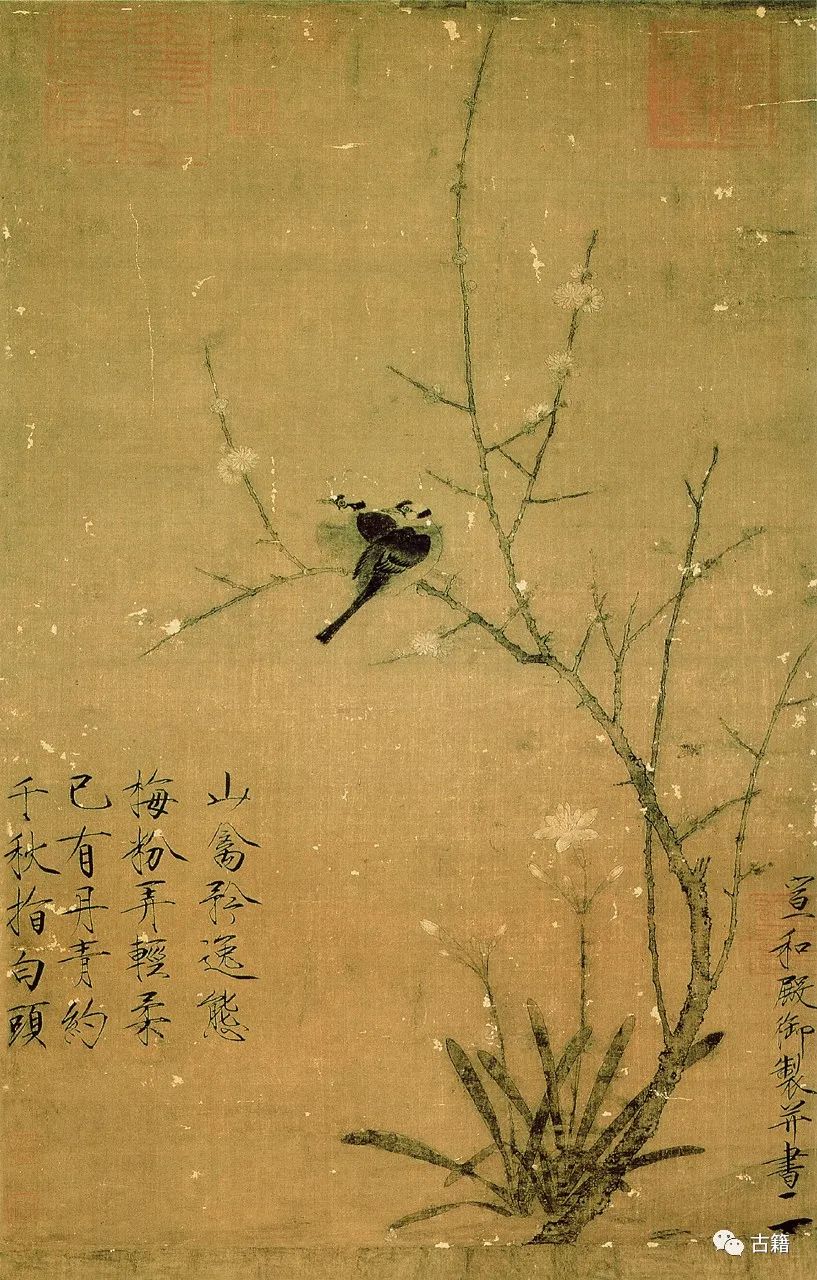 山禽矜逸態
梅粉弄輕柔
已有丹青約
千秋指白頭
宣和殿御製并書
古籍